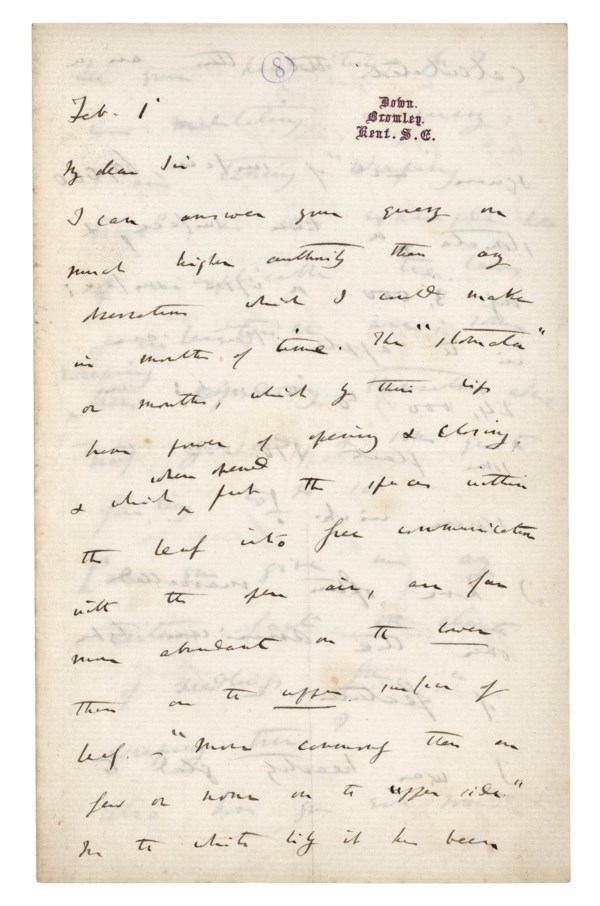 (8)
Feb. 1
Down.
Bromley.
Kent. S.E.
My dear Sir
I can answer your query on
much higher authority than any
observations which I could make
in months of time. The "stomata"
or mouths, which by their lips
have power of opening & closing,
& which when opened put the spaces within
the leaf into free communication
with the open air, are far
more abundant on the lower
than on the upper surface of
leaf. - "More commonly there are
few or none on the upper side."
In the white lily it has been